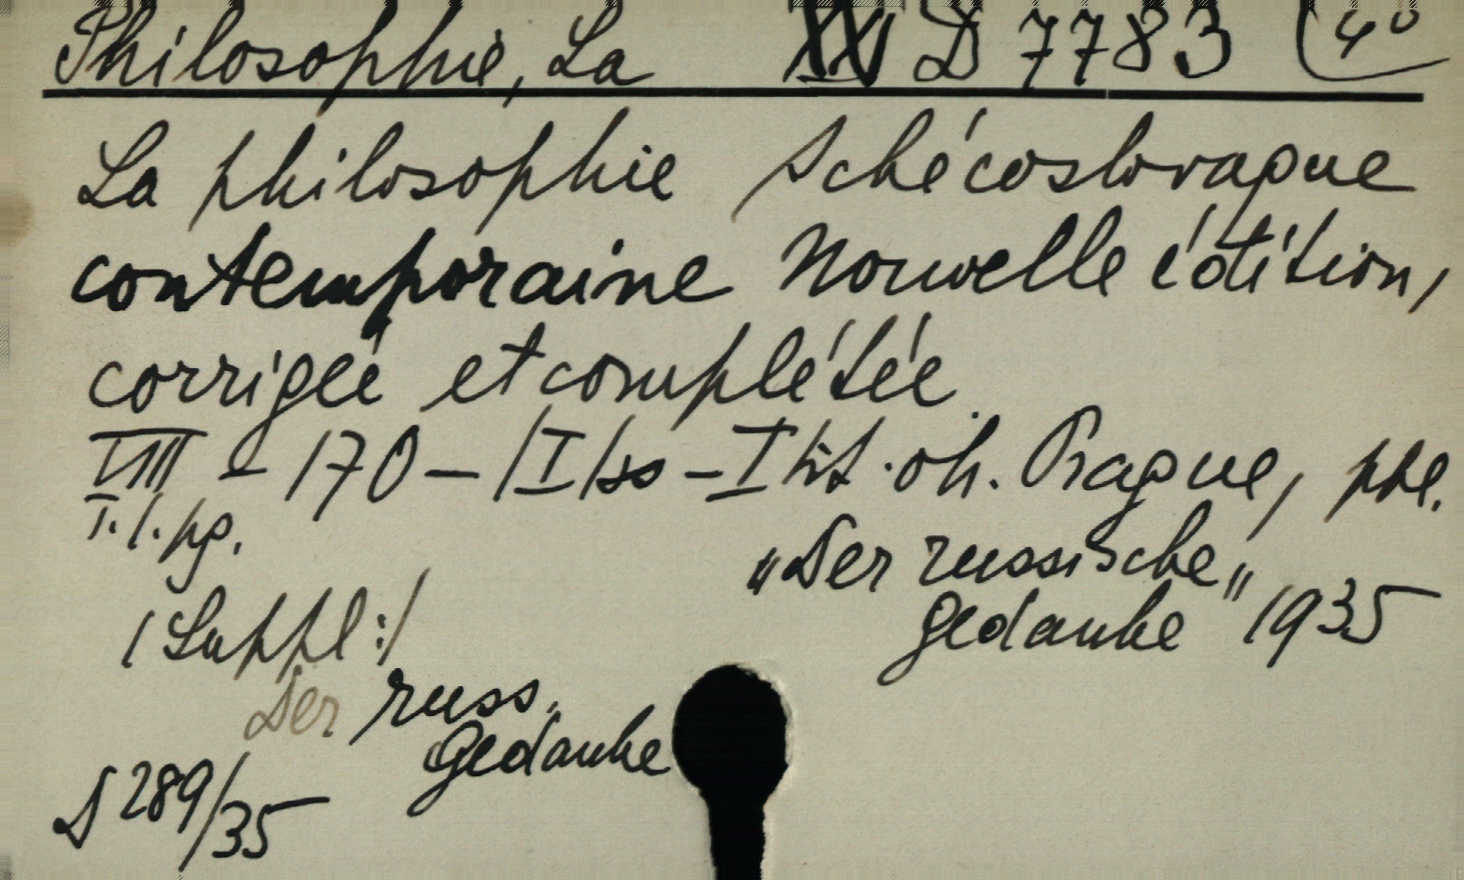 Philosophie, La XIV D 7783 (4°
La philosophie tchécoslovaque
contemporaine Nouvelle édition,
corrigée et complétée.
VIII - 170 - /I/ ss - I tit. ob. Prague, ppl.
I.l.pg.
„Der russische„
Gedanke" 1935
/Suppl:/
Der russ.
Gedanke
D 289/35